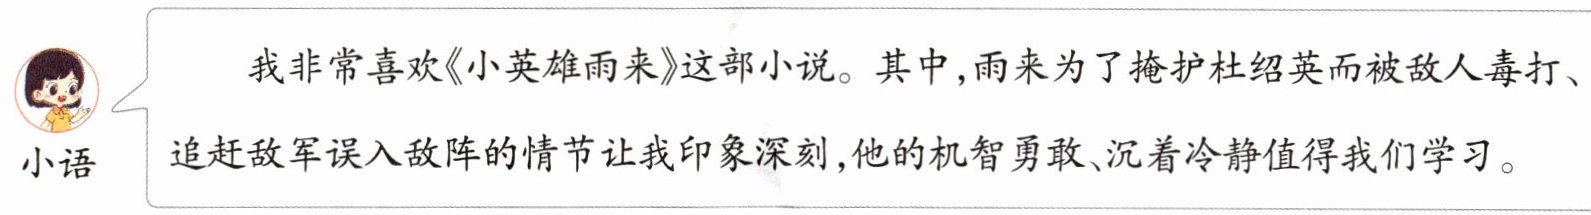 我非常喜欢《小英雄雨来》这部小说。其中,雨来为了掩护杜绍英而被敌人毒打、
追赶敌军误入敌阵的情节让我印象深刻,他的机智勇敢、沉着冷静值得我们学习。
小语